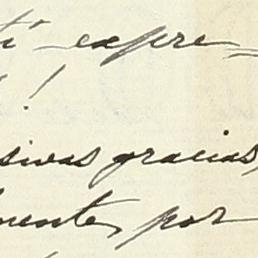 ti expre=
!
sivas gracias,
mente, por